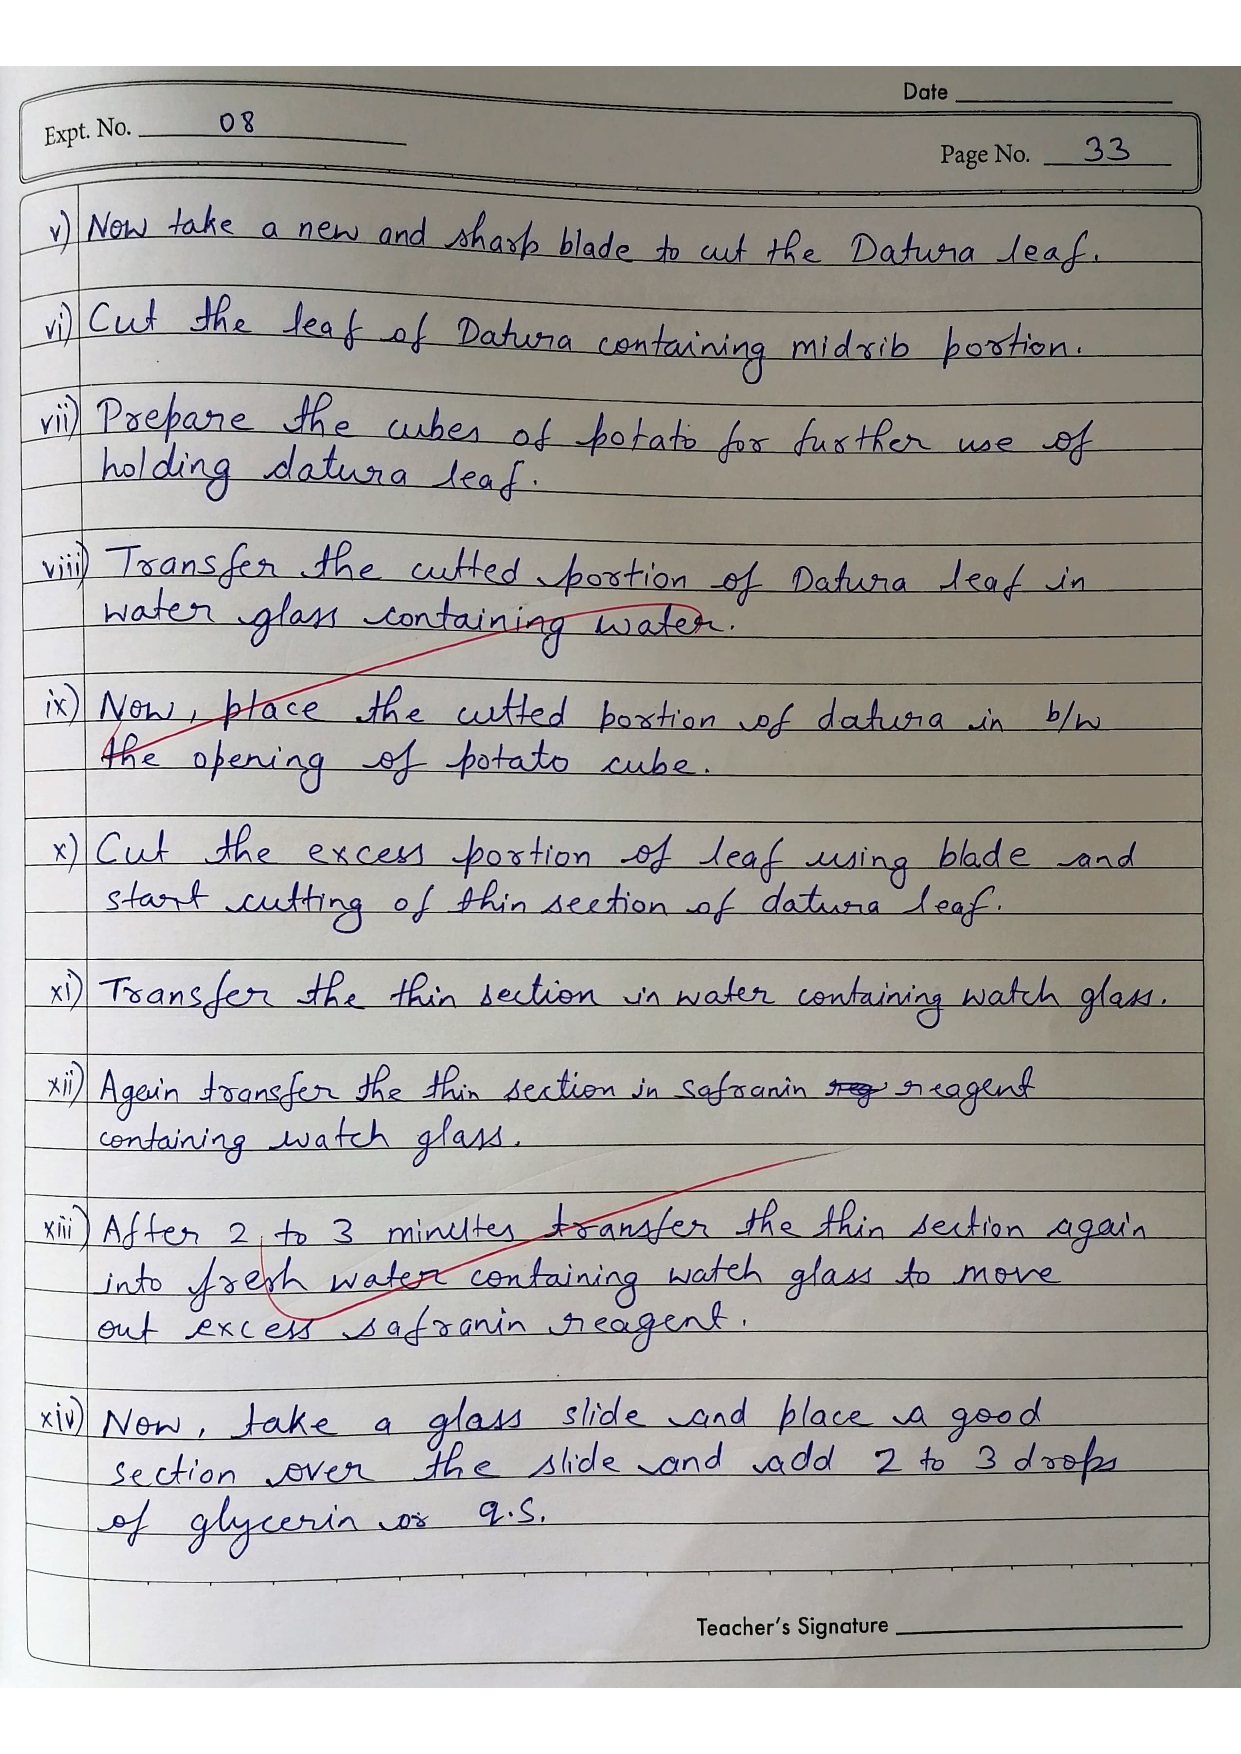 Date
Expt. No. 08
Page No. 33
v) Now take a new and sharp blade to cut the Datura leaf.
vi) Cut the leaf of Datura containing midrib portion.
vii) Prepare the cubes of potato for further use of
holding datura leaf.
viii) Transfer the cutted portion of Datura leaf in
water glass containing water.
ix) Now, place the cutted portion of datura in b/w
the opening of potato cube.
x) Cut the excess portion of leaf using blade and
start cutting of thin section of datura leaf.
xi) Transfer the thin section in water containing watch glass.
xii) Again transfer the thin section in safranin reg reagent
containing watch glass.
xiii) After 2 to 3 minutes transfer the thin section again
into fresh water containing watch glass to move
out excess safranin reagent.
xiv) Now, take a glass slide and place a good
section over the slide and add 2 to 3 drops
of glycerin or q.s.
Teacher's Signature